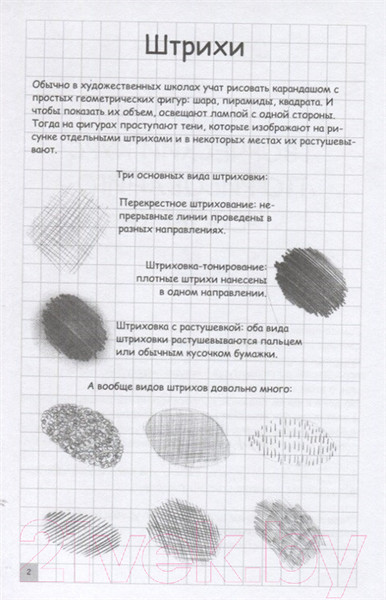 Штрихи
Обычно в художественных школах учат рисовать карандашом с
простых геометрических фигур: шара, пирамиды, квадрата. И
чтобы показать их объем, освещают лампой с одной стороны.
Тогда на фигурах проступают тени, которые изображают на ри-
сунке отдельными штрихами и в некоторых местах их растушевы-
вают.
Три основных вида штриховки:
Перекрестное штрихование: не-
прерывные линии проведены в
разных направлениях.
Штриховка-тонирование:
плотные штрихи нанесены
в одном направлении.
Штриховка с растушевкой: оба вида
штриховки растушевываются пальцем
или обычным кусочком бумажки.
А вообще видов штрихов довольно много:
2
21vek.by